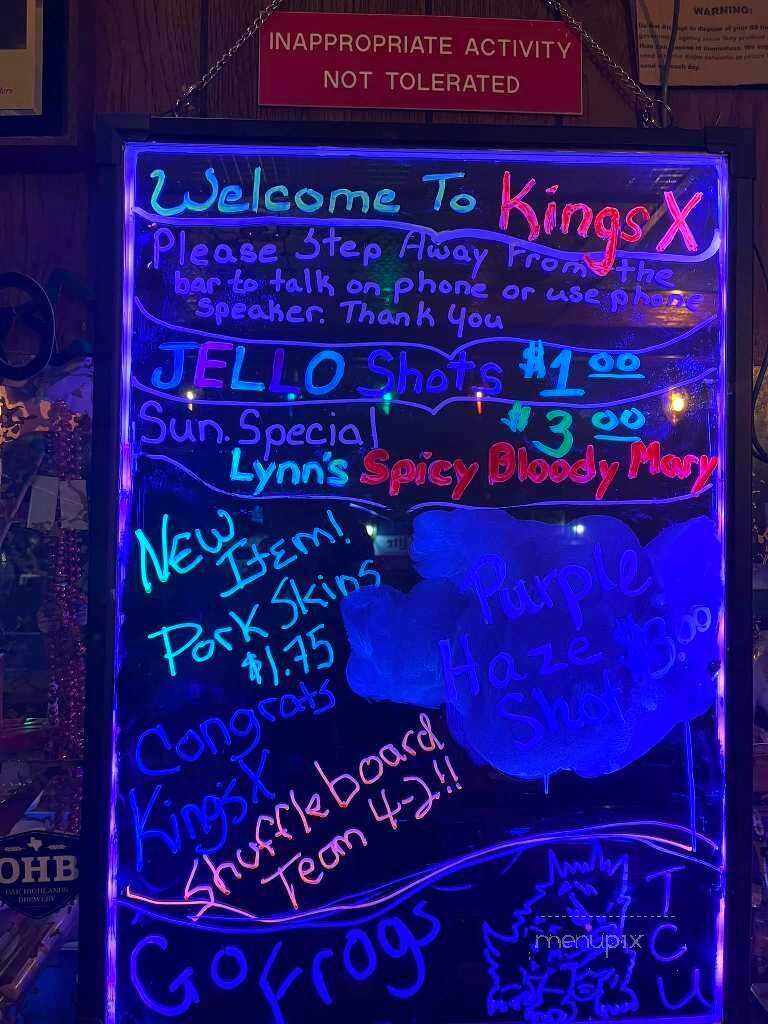 WARNING:
INAPPROPRIATE ACTIVITY
NOT TOLERATED
Welcome To Kings X
Please Step Away From the
bar to talk on phone or use phone
speaker. Thank you
JELLO Shots $1.00
Sun. Special $3.00
Lynn's Spicy Bloody Mary
New
Item!
Pork Skins
$1.75
Purple
Haze $3.00
Shot
Congrats
King's X
Shuffleboard
Team 4-2!!
OHB
OAK HIGHLANDS
BREWERY
Go Frogs
TCU
menupix